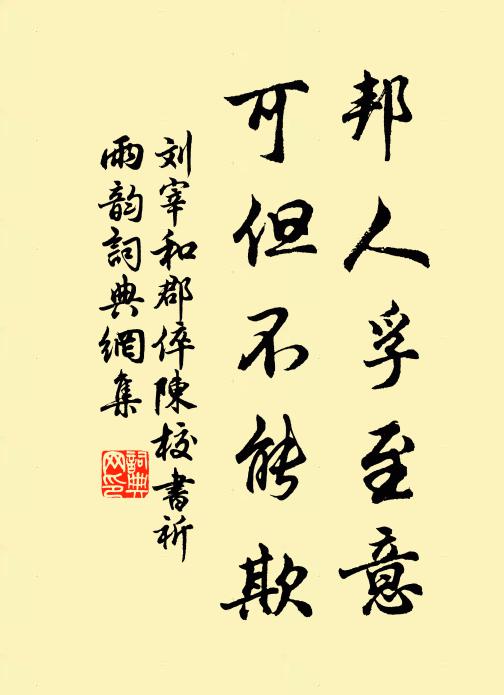 邦人孚至意
可但不能欺
刘宰和郡倅陳校書祈
雨韵詞典網集
詞典网印